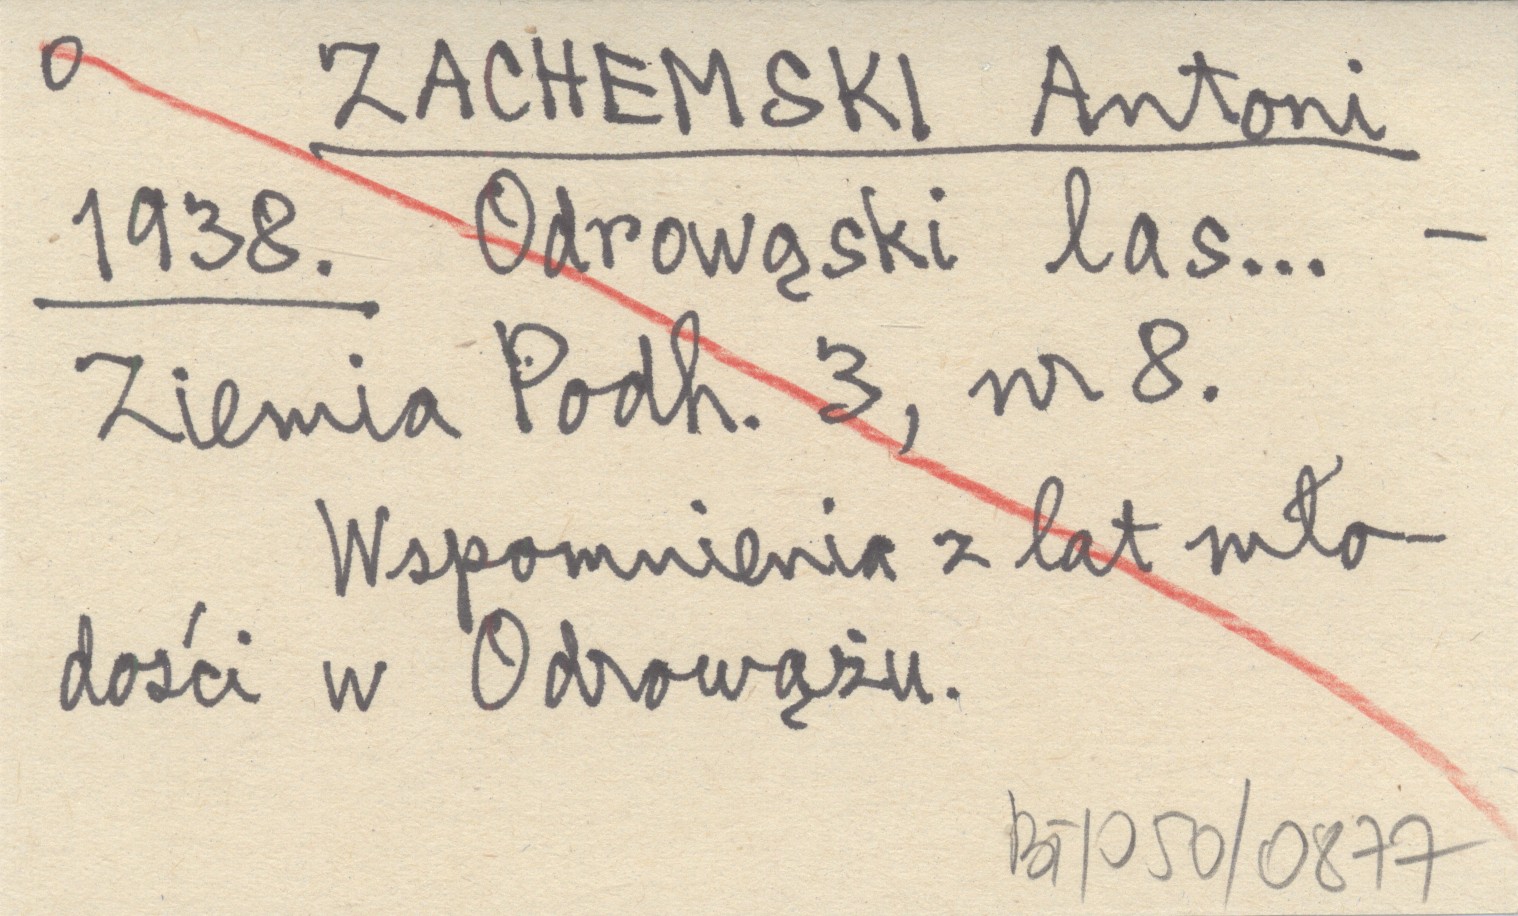 o ZACHEMSKI Antoni
1938. Odrowąski las... –
Ziemia Podh. 3, nr 8.
Wspomnienia z lat mło-
dości w Odrowążu.
BT/050/0877